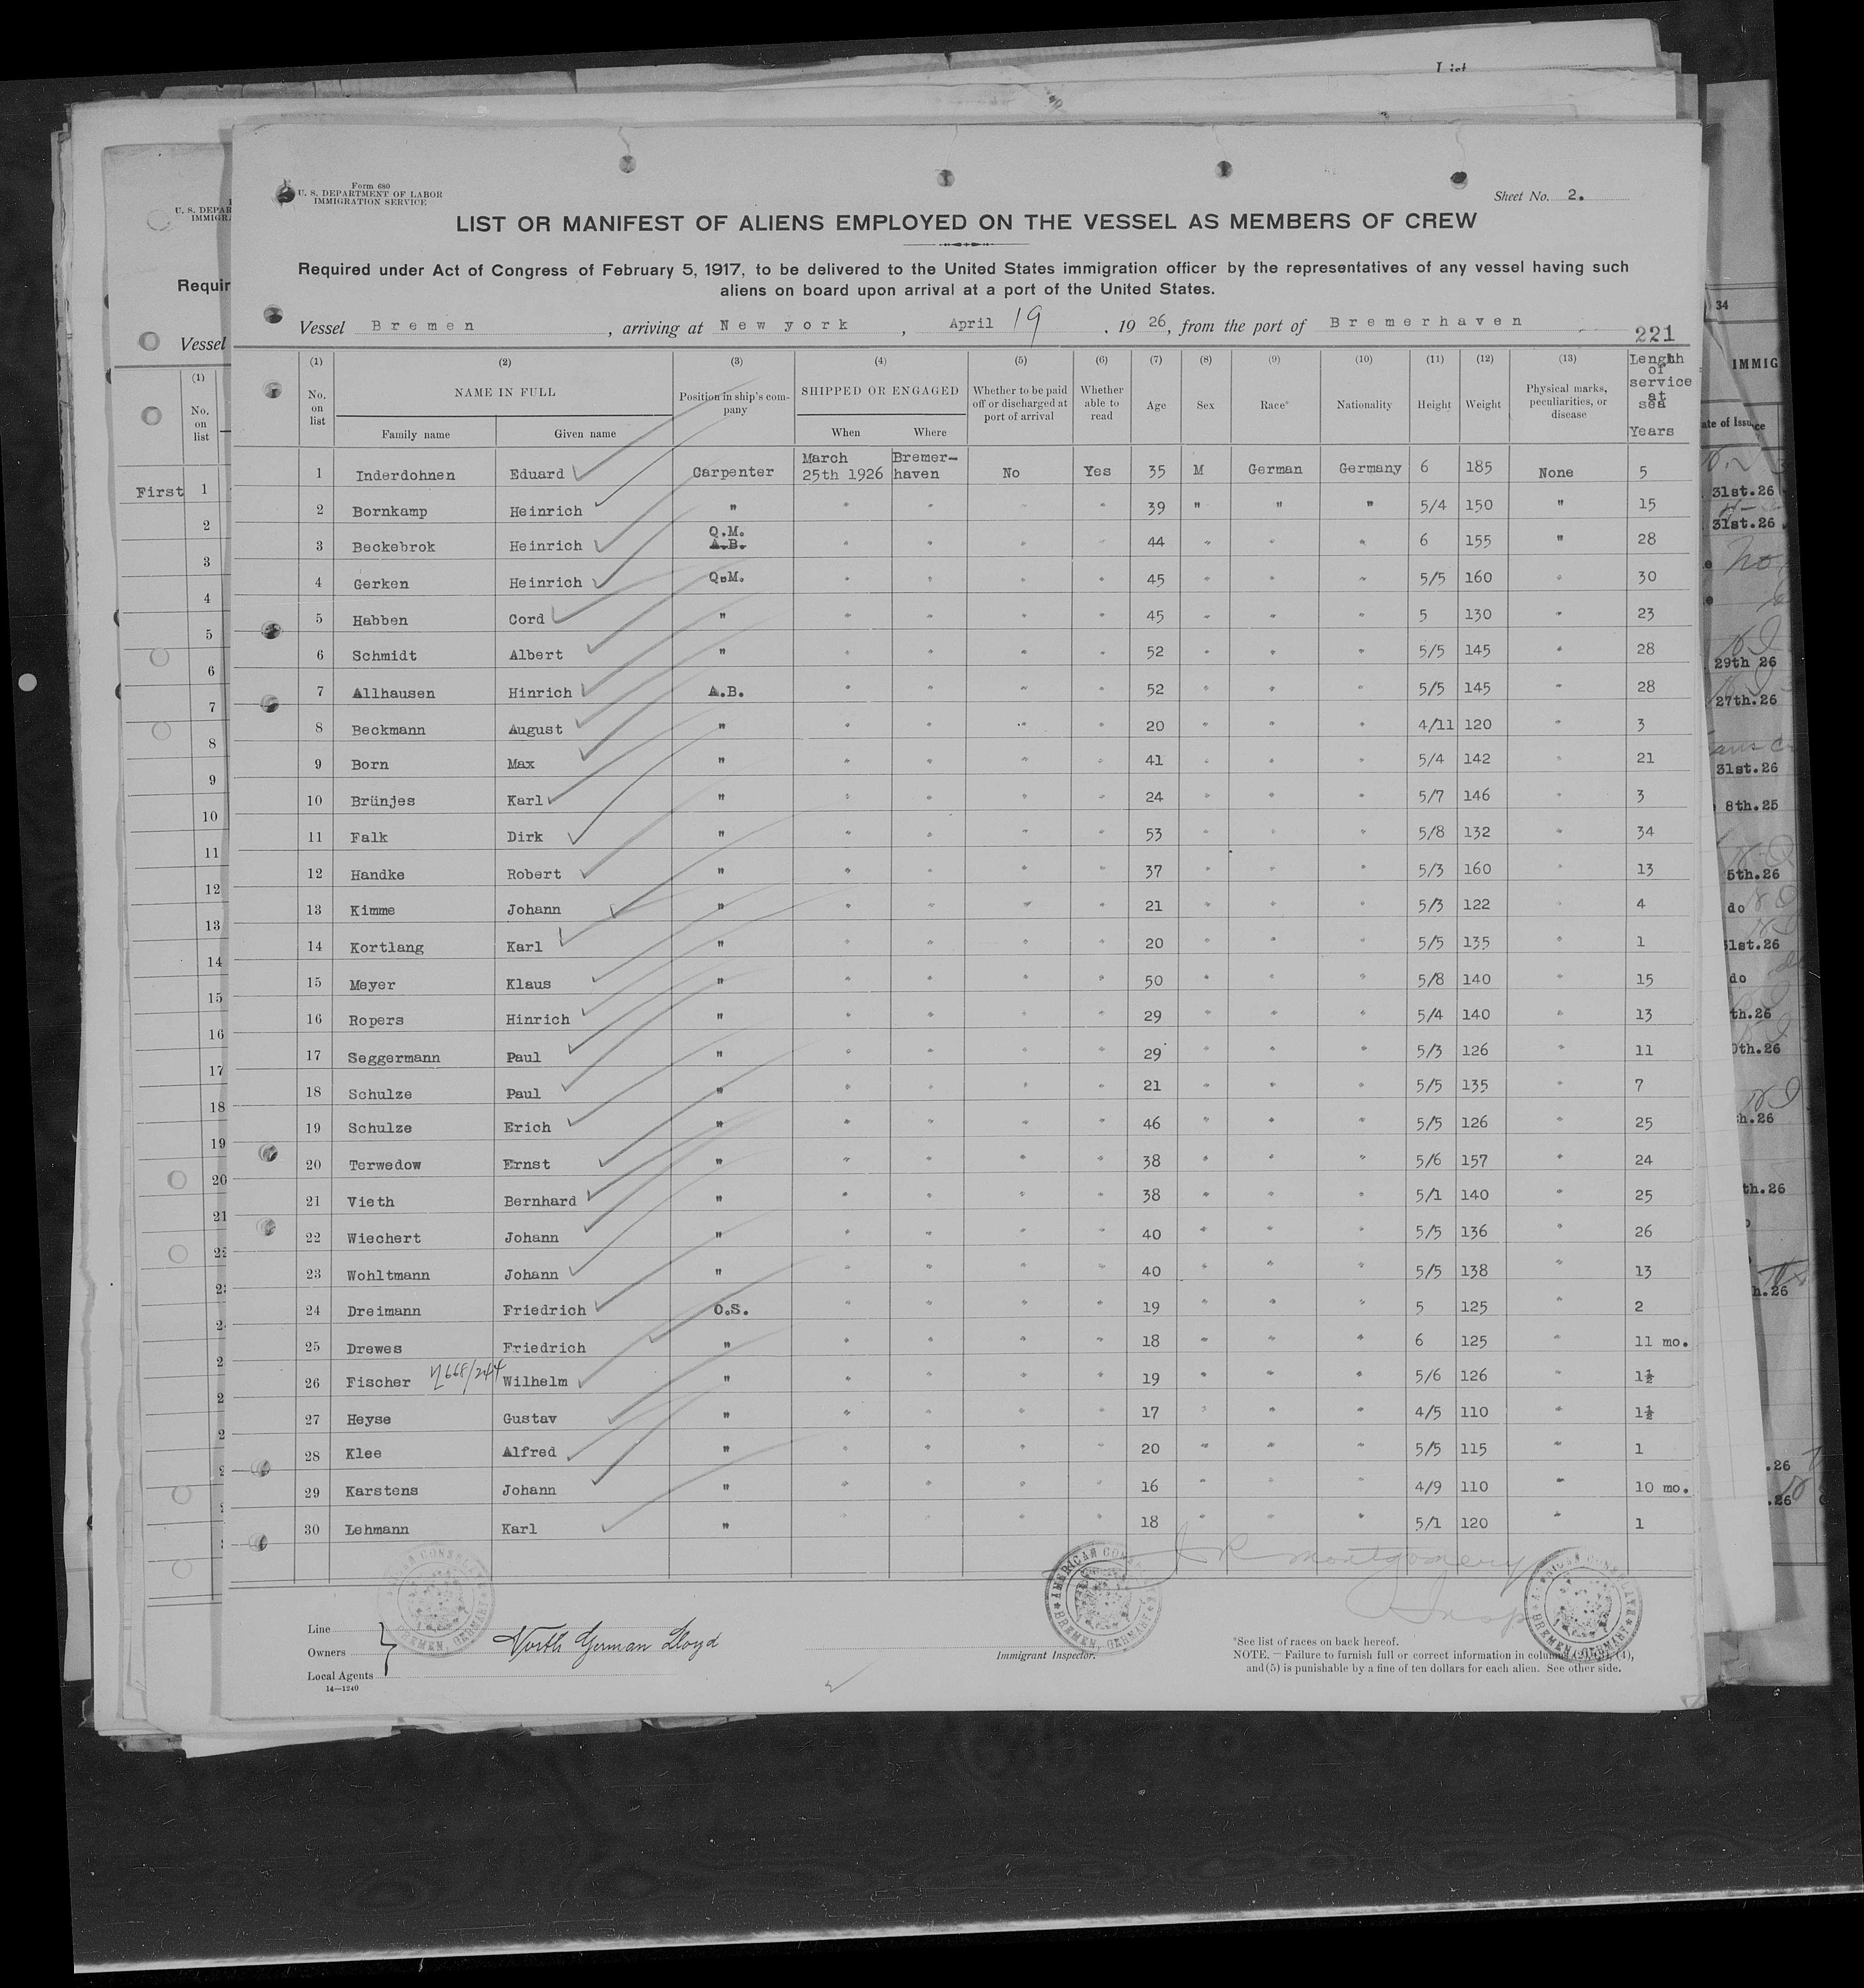 List
Form 680
U. S. DEPARTMENT OF LABOR
IMMIGRATION SERVICE
Sheet No. 2.
LIST OR MANIFEST OF ALIENS EMPLOYED ON THE VESSEL AS MEMBERS OF CREW
Required under Act of Congress of February 5, 1917, to be delivered to the United States immigration officer by the representatives of any vessel having such
aliens on board upon arrival at a port of the United States.
Vessel Bremen, arriving at New york, April 19, 1926, from the port of Bremerhaven
221
(1) (2) (3) (4) (5) (6) (7) (8) (9) (10) (11) (12) (13)
No. on list NAME IN FULL Family name Given name Position in ship's company SHIPPED OR ENGAGED When Where Whether to be paid off or discharged at port of arrival Whether able to read Age Sex Race* Nationality Height Weight Physical marks, peculiarities, or disease Length of service at sea Years
1 Inderdohnen Eduard Carpenter March 25th 1926 Bremerhaven No Yes 35 M German Germany 6 185 None 5
2 Bornkamp Heinrich " " " " " 39 " " " 5/4 150 " 15
3 Beckebrok Heinrich Q.M. A.B. " " " " 44 " " " 6 155 " 28
4 Gerken Heinrich Q.M. " " " " 45 " " " 5/5 160 " 30
5 Habben Cord " " " " " 45 " " " 5 130 " 23
6 Schmidt Albert " " " " " 52 " " " 5/5 145 " 28
7 Allhausen Hinrich A.B. " " " " 52 " " " 5/5 145 " 28
8 Beckmann August " " " " " 20 " " " 4/11 120 " 3
9 Born Max " " " " " 41 " " " 5/4 142 " 21
10 Brünjes Karl " " " " " 24 " " " 5/7 146 " 3
11 Falk Dirk " " " " " 53 " " " 5/8 132 " 34
12 Handke Robert " " " " " 37 " " " 5/3 160 " 13
13 Kimme Johann " " " " " 21 " " " 5/3 122 " 4
14 Kortlang Karl " " " " " 20 " " " 5/5 135 " 1
15 Meyer Klaus " " " " " 50 " " " 5/8 140 " 15
16 Ropers Hinrich " " " " " 29 " " " 5/4 140 " 13
17 Seggermann Paul " " " " " 29 " " " 5/3 126 " 11
18 Schulze Paul " " " " " 21 " " " 5/5 135 " 7
19 Schulze Erich " " " " " 46 " " " 5/5 126 " 25
20 Terwedow Ernst " " " " " 38 " " " 5/6 157 " 24
21 Vieth Bernhard " " " " " 38 " " " 5/1 140 " 25
22 Wiechert Johann " " " " " 40 " " " 5/5 136 " 26
23 Wohltmann Johann " " " " " 40 " " " 5/5 138 " 13
24 Dreimann Friedrich O.S. " " " " 19 " " " 5 125 " 2
25 Drewes Friedrich " " " " " 18 " " " 6 125 " 11 mo.
26 Fischer Wilhelm " " " " " 19 " " " 5/6 126 " 1½
27 Heyse Gustav " " " " " 17 " " " 4/5 110 " 1½
28 Klee Alfred " " " " " 20 " " " 5/5 115 " 1
29 Karstens Johann " " " " " 16 " " " 4/9 110 " 10 mo.
30 Lehmann Karl " " " " " 18 " " " 5/1 120 " 1
J R Montgomery
Insp
AMERICAN CONSULATE BREMEN, GERMANY
Line
Owners
Local Agents
North German Lloyd
14—1240
Immigrant Inspector.
*See list of races on back hereof.
NOTE. — Failure to furnish full or correct information in columns (2), (3), (4),
and (5) is punishable by a fine of ten dollars for each alien. See other side.